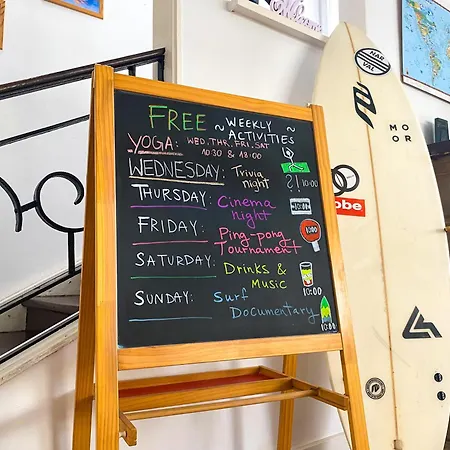 Welcome
FREE ~ WEEKLY ~
ACTIVITIES
YOGA: WED. THR. FRI. SAT
10:30 & 18:00
WEDNESDAY: Trivia
night ?! 10:00
THURSDAY: Cinema
night 10:00
FRIDAY: Ping-pong
Tournament 10:00
SATURDAY: Drinks &
Music 10:00
SUNDAY: Surf
Documentary 10:00
MO
OR
obe